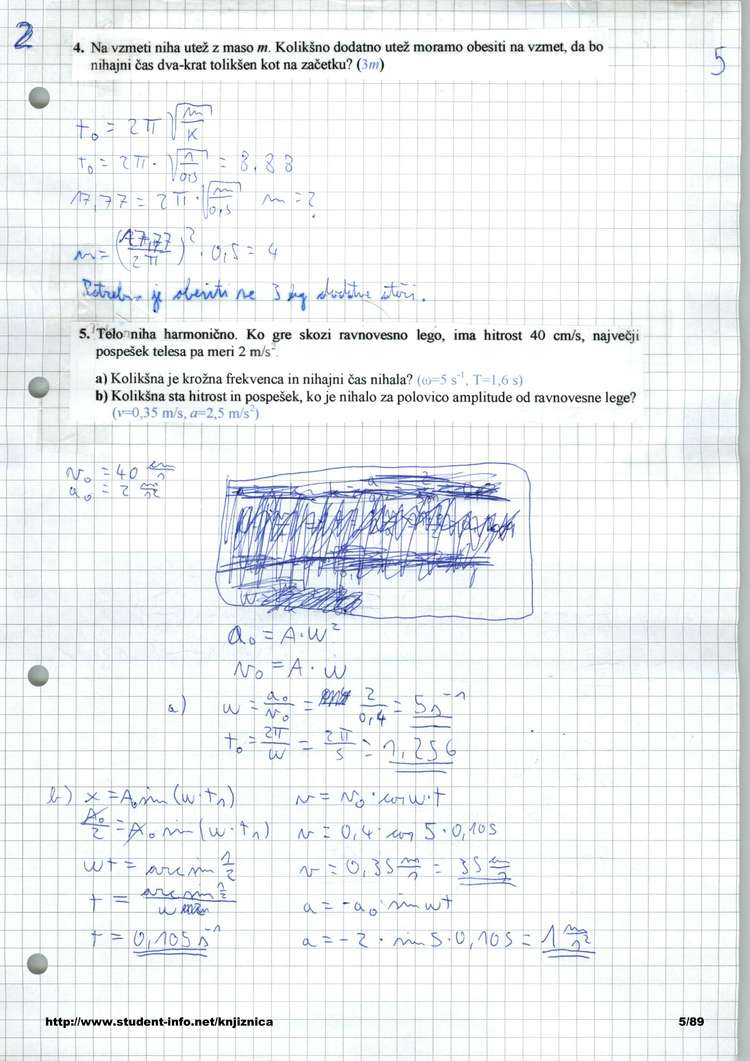 2
5
4. Na vzmeti niha utež z maso m. Kolikšno dodatno utež moramo obesiti na vzmet, da bo
nihajni čas dva-krat tolikšen kot na začetku? (3m)
t₀ = 2π √(m/K)
t₀ = 2π · √(1/0,5) = 8,88
17,77 = 2π · √(m/0,5) m = ?
m = (17,77/2π)² · 0,5 = 4
je obesiti 3 kg
5. Telo niha harmonično. Ko gre skozi ravnovesno lego, ima hitrost 40 cm/s, največji
pospešek telesa pa meri 2 m/s²
a) Kolikšna je krožna frekvenca in nihajni čas nihala? (ω=5 s⁻¹, T=1,6 s)
b) Kolikšna sta hitrost in pospešek, ko je nihalo za polovico amplitude od ravnovesne lege?
(v=0,35 m/s, a=2,5 m/s²)
v₀ = 40 cm/s
a₀ = 2 m/s²
a₀ = A · W²
v₀ = A · W
a) W = a₀/v₀ = 2/0,4 = 5s⁻¹
t₀ = 2π/W = 2π/5 = 1,256
b) x = A₀ sin (W · t₁) v = v₀ · cos W · t
A₀/2 = A₀ sin (W · t₁) v = 0,4 · cos 5 · 0,105
Wt = arc sin 1/2 v = 0,35 m/s = 35 cm/s
t = arc sin 1/2 / W a = -a₀ · sin Wt
t = 0,105 s⁻¹ a = -2 · sin 5 · 0,105 = 1 m/s²
http://www.student-info.net/knjiznica 5/89